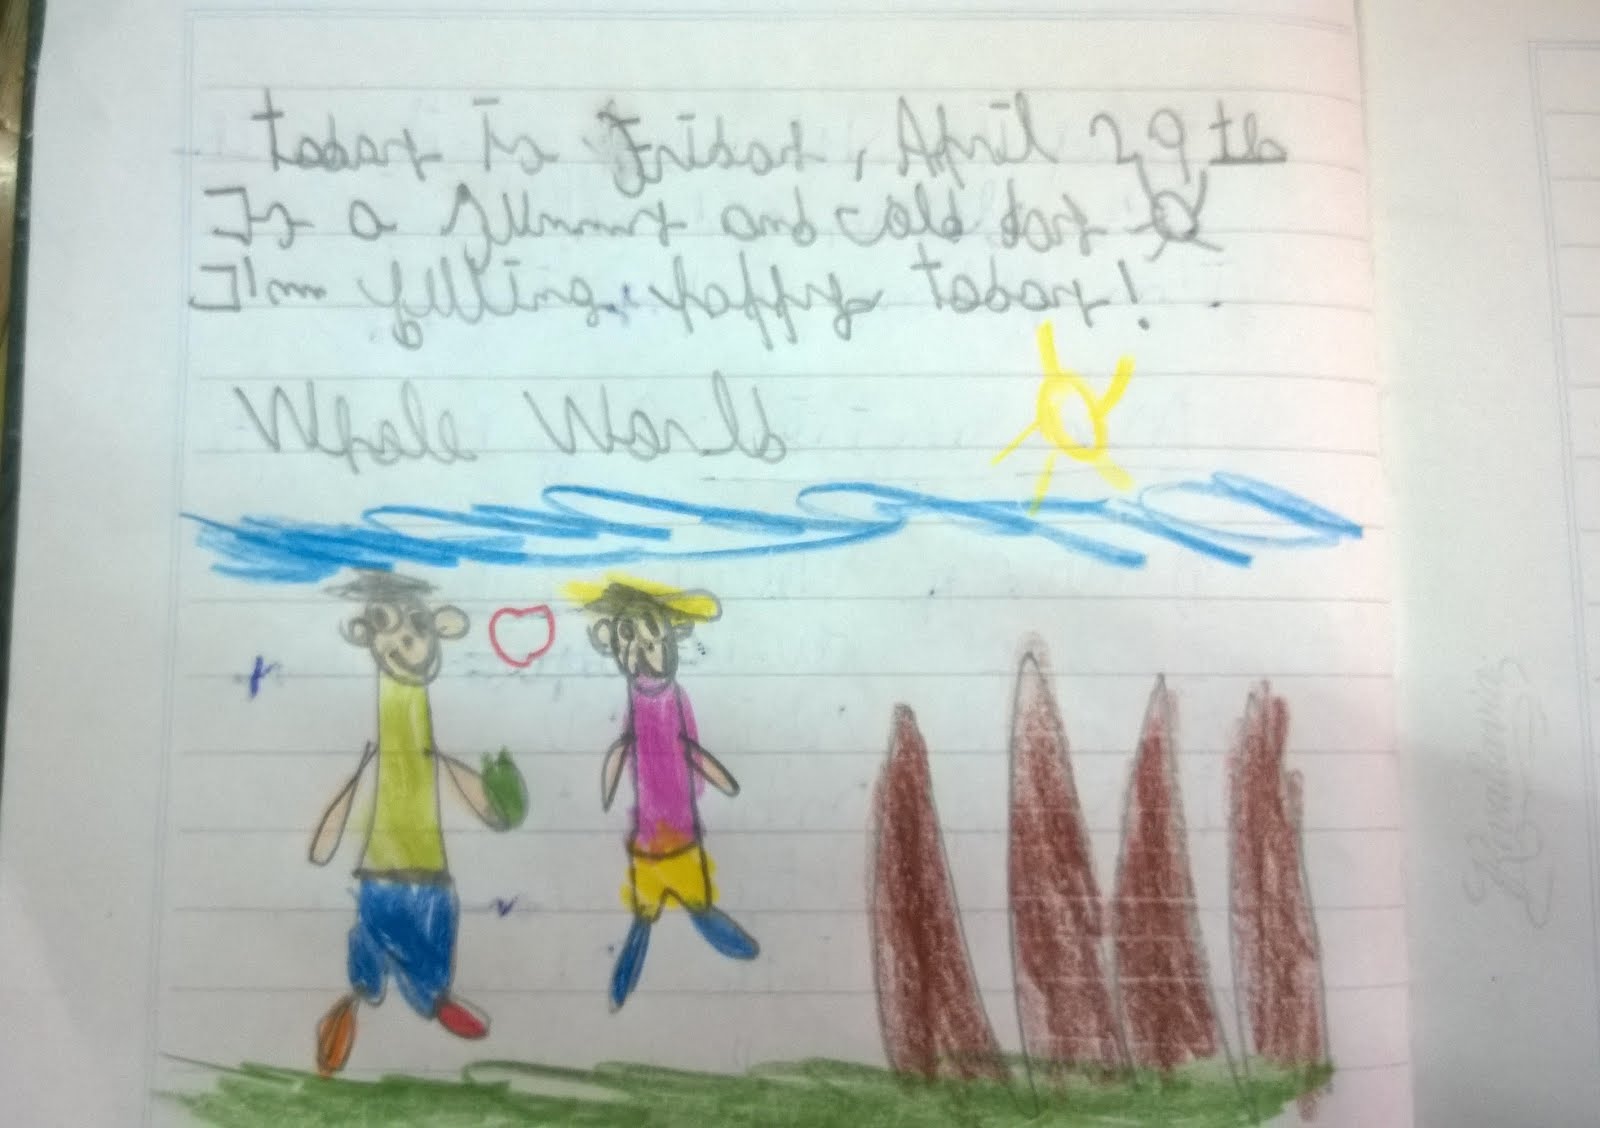 Today is Friday, April 29th
Is a sunny and cold day
I'm felling happy today!
Whole World
Kondania